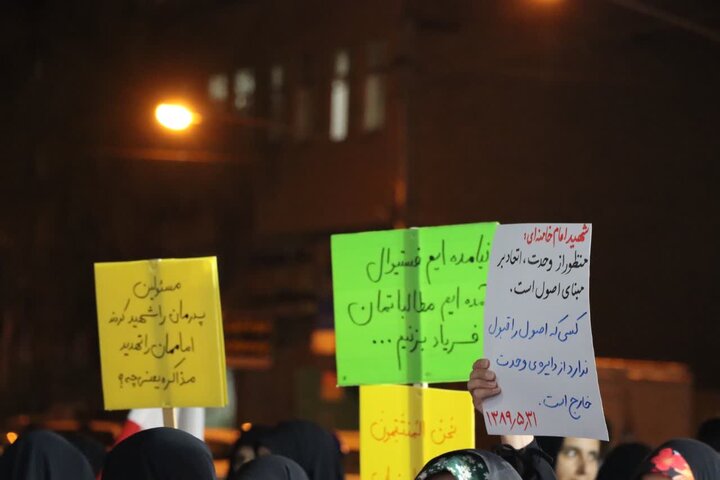 مسئولین
پدرمان را شهید کردند
اماممان را تهدید
مذاکره یعنی چه؟
نیامده ایم فستیوال
آمده ایم مطالباتمان
فریاد بزنیم ...
نحن
المنتقمون
شهید امام خامنه‌ای:
منظور از وحدت، اتحاد بر
مبنای اصول است.
کسی که اصول را قبول
ندارد از دایره‌ی وحدت
خارج است.
۱۳۸۹،۵،۳۱